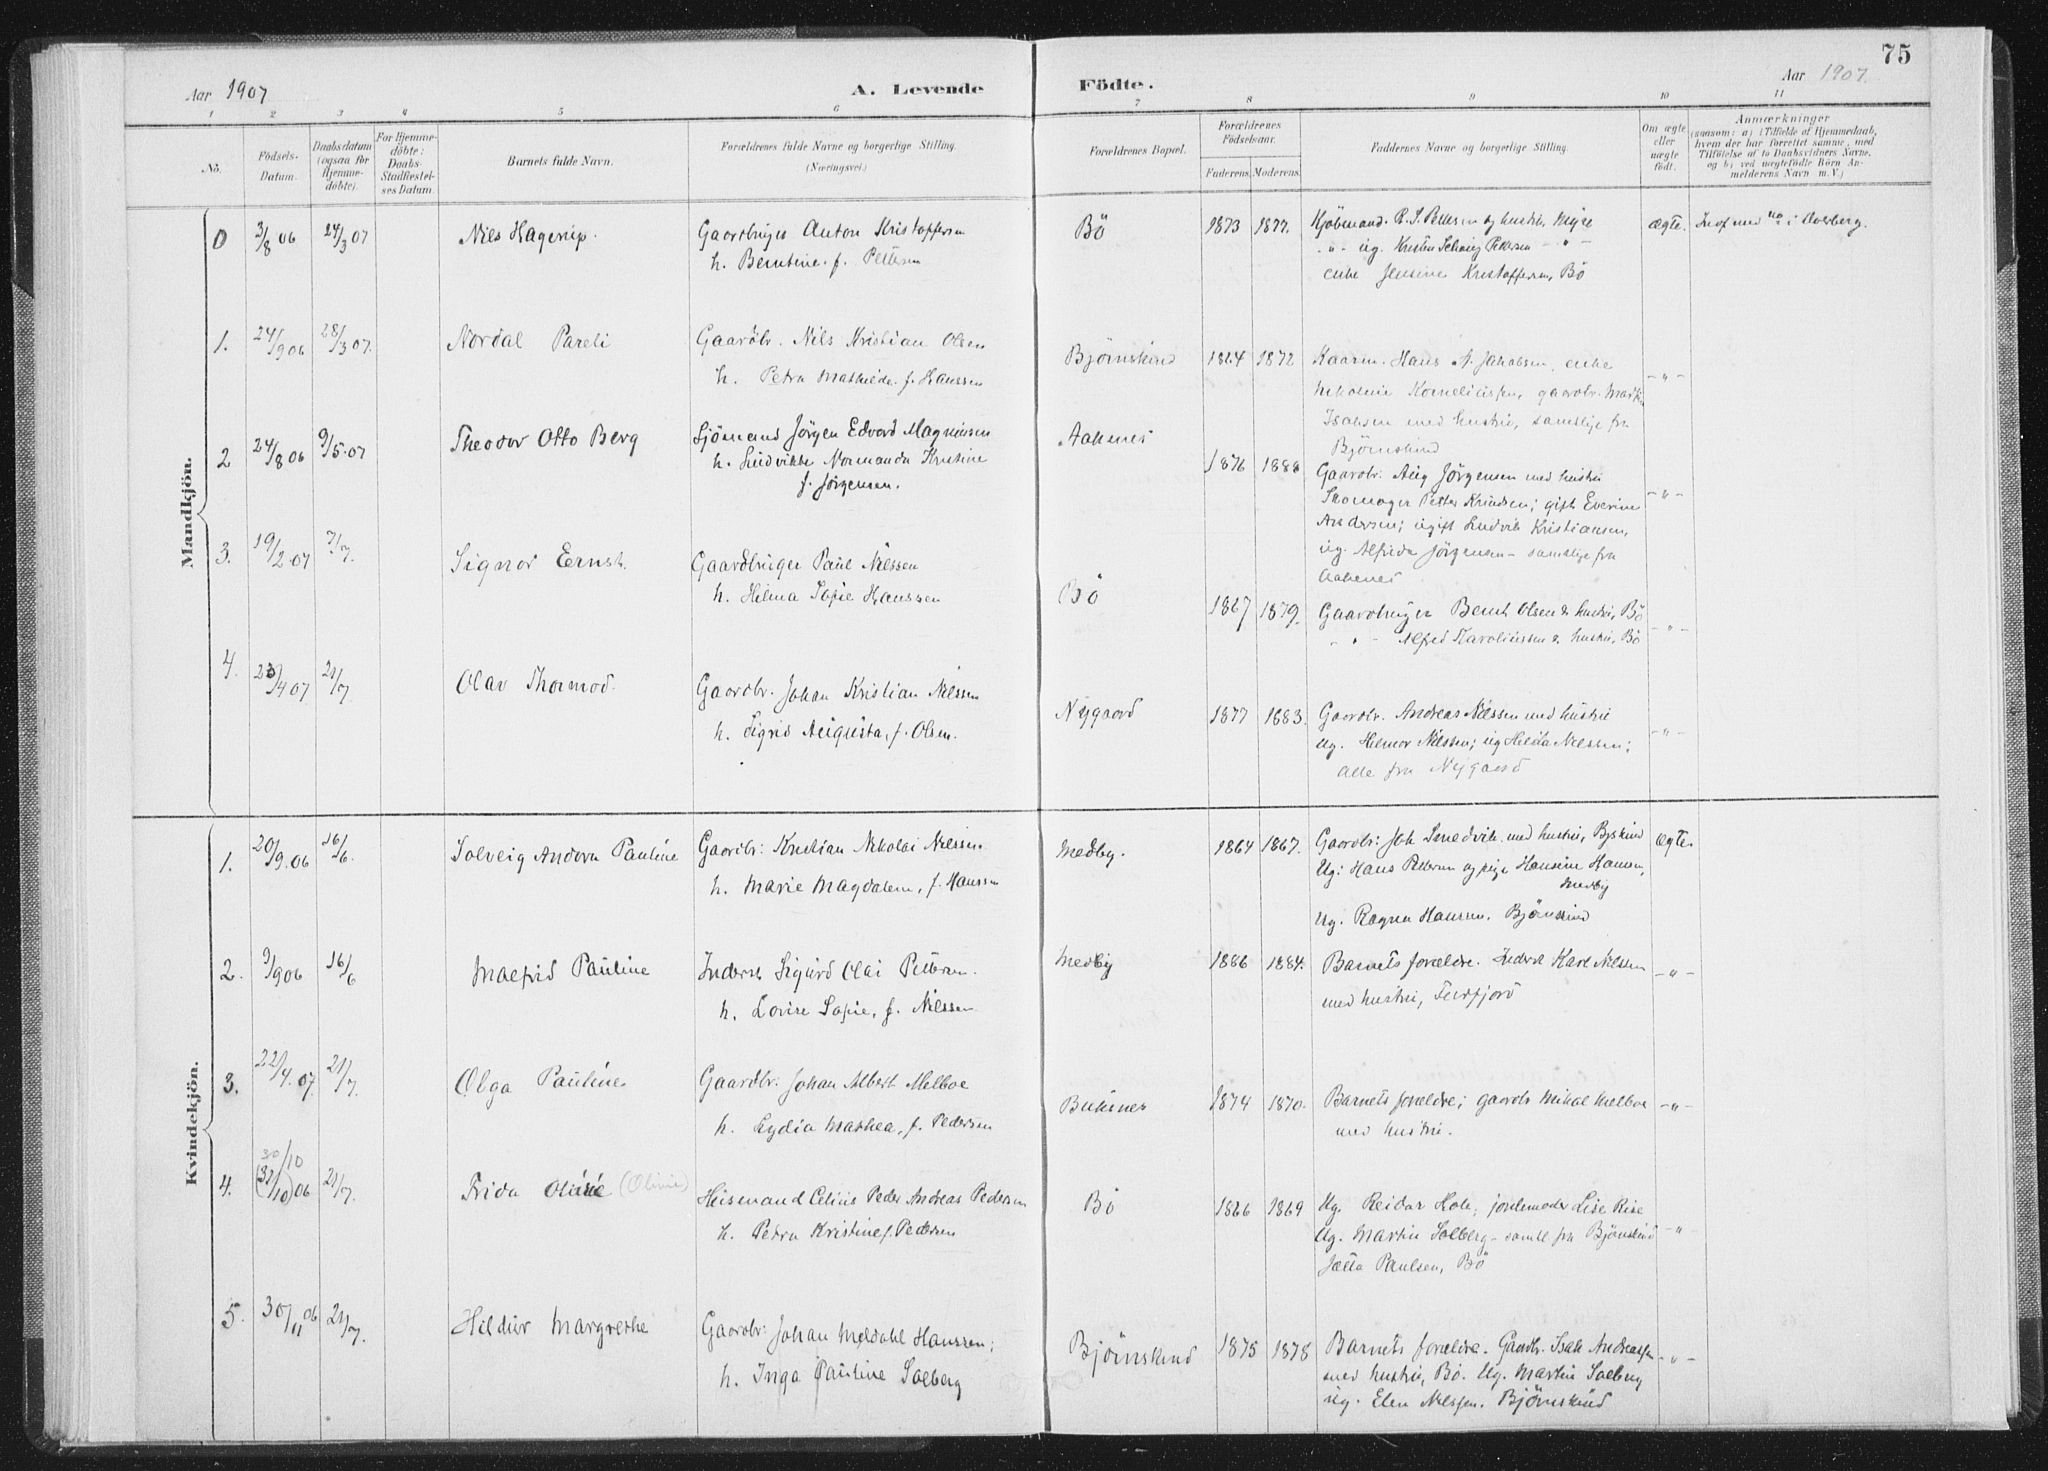 75
Aar 1907
A. Levende
Födte.
Aar 1907.
1 2 3 4 5 6 7 8 9 10 11
No.
Födsels-
Datum.
Daabsdatum
(ogsaa for
Hjemme-
döbte).
For Hjemme-
döbte:
Daabs-
Stadfæstel-
ses Datum.
Barnets fulde Navn.
Forældrenes fulde Navne og borgerlige Stilling.
(Næringsvei.)
Forældrenes Bopæl.
Forældrenes
Födselsaar.
Faderens. Moderens.
Faddernes Navne og borgerlige Stilling.
Om ægte
eller
uægte
födt.
Anmærkninger
(saasom: a) i Tilfælde af Hjemmedaab,
hvem der har forrettet samme, med
Tilföielse af to Daabsvidners Navne,
og b) ved uægtefödte Börn An-
melderens Navn m. V.)
Mandkjön.
0 3/8 06 24/3 07 Nils Hagerup. Gaardbruger Anton Kristoffersen
h. Berntine f. Pettersen
Bö 1873 1877. Kjöbmand R. J. Pettersen og hustru, Myre
ug. Kristen Schøning Pedersen
enke Jensine Kristoffersen, Bö
ægte. Indf med no i Dverberg.
1. 24/9 06 28/3 07. Nordal Pareli Gaardbr. Nils Kristian Olsen
h. Petra Mathilde f. Hanssen
Björnskind 1864 1872 Kaarm. Hans A. Jakobsen, enke
Nekoline Korneliussen, gaardbr. Martin
Isaksen med hustru, samtlige fra
Björnskind
-"-
2 24/8 06 9/5 07 Theodor Otto Berg Sjömand Jörgen Edvard Magnussen
h. Ludvikke Normanda Kristine
f. Jörgensen.
Aaknes 1876 1888 Gaardbr. Aug Jörgensen med hustru
Skomager Petter Knudsen; gift Everine
Andersen; ugift Ludvik Kristiansen,
ug. Alfreda Jörgensen - samtlige fra
Aaknes
-"-
3. 19/2 07 7/7. Signor Ernst. Gaardbruger Paul Nilssen
h. Hilma Sofie Hanssen
Bö 1867 1879. Gaardbruger Bernt Olsen & hustru, Bö
-"- Alfred Karoliussen & hustru, Bö
-"-
4. 23/4 07 21/7. Olav Thormod. Gaardbr. Johan Kristian Nilssen
h. Sigrid Augusta, f. Olsen.
Nygaard 1877 1883. Gaardbr. Andreas Nilssen med hustru
ug. Hilmar Nilssen; ug Hilda Nilssen;
alle fra Nygaard
-"-
Kvindekjön.
1. 20/9 06 16/6. Solveig Andora Pauline Gaardbr: Kristian Nikolai Nilssen
h. Marie Magdalena, f. Hanssen
Medby. 1864 1867. Gaardbr: Joh Smedvik med hustru, Bjskind
Ug: Hans Pettersen og pige Hansine Hansen,
Medby
Ug. Ragna Hansen, Björnskind
ægte.
2. 9/9 06 16/6 Malfrid Pauline Inderst Sigurd Olai Pettersen.
h. Lovise Sofie, f. Nilssen
Medby 1886 1884. Barnets forældre. Inderst Karl Nilssen
med hustru, Finfjord
-"-
3. 22/4 07. 21/7. Olga Pauline Gaardbr: Johan Albert Melboe
h. Lydia Mathea, f. Pedersen
Buksnes 1874 1870. Barnets forældre; gaardbr Mikal Melboe
med hustru.
-"-
4. 30/10
(31/10) 06 21/7. Frida Olivie (Olivie) Huismand Celius Peder Andreas Pedersen
h. Petra Kristine f. Pedersen
Bö 1866 1869 Ug. Reidar Hole; jordemoder Lise Rise
Ug. Martin Solberg - samtl fra Björnskind
Jetta Paulsen, Bö
-"-
5. 30/11 06 21/7. Hildur Margrethe Gaardbr: Johan Meldahl Hanssen;
h. Inga Pauline Solberg
Björnskind 1875 1878 Barnets forældre. Gaardbr. Isak Andreassen
med hustru, Bö. Ug. Martin Solberg
ug. Elen Nilssen. Björnskind
-"-